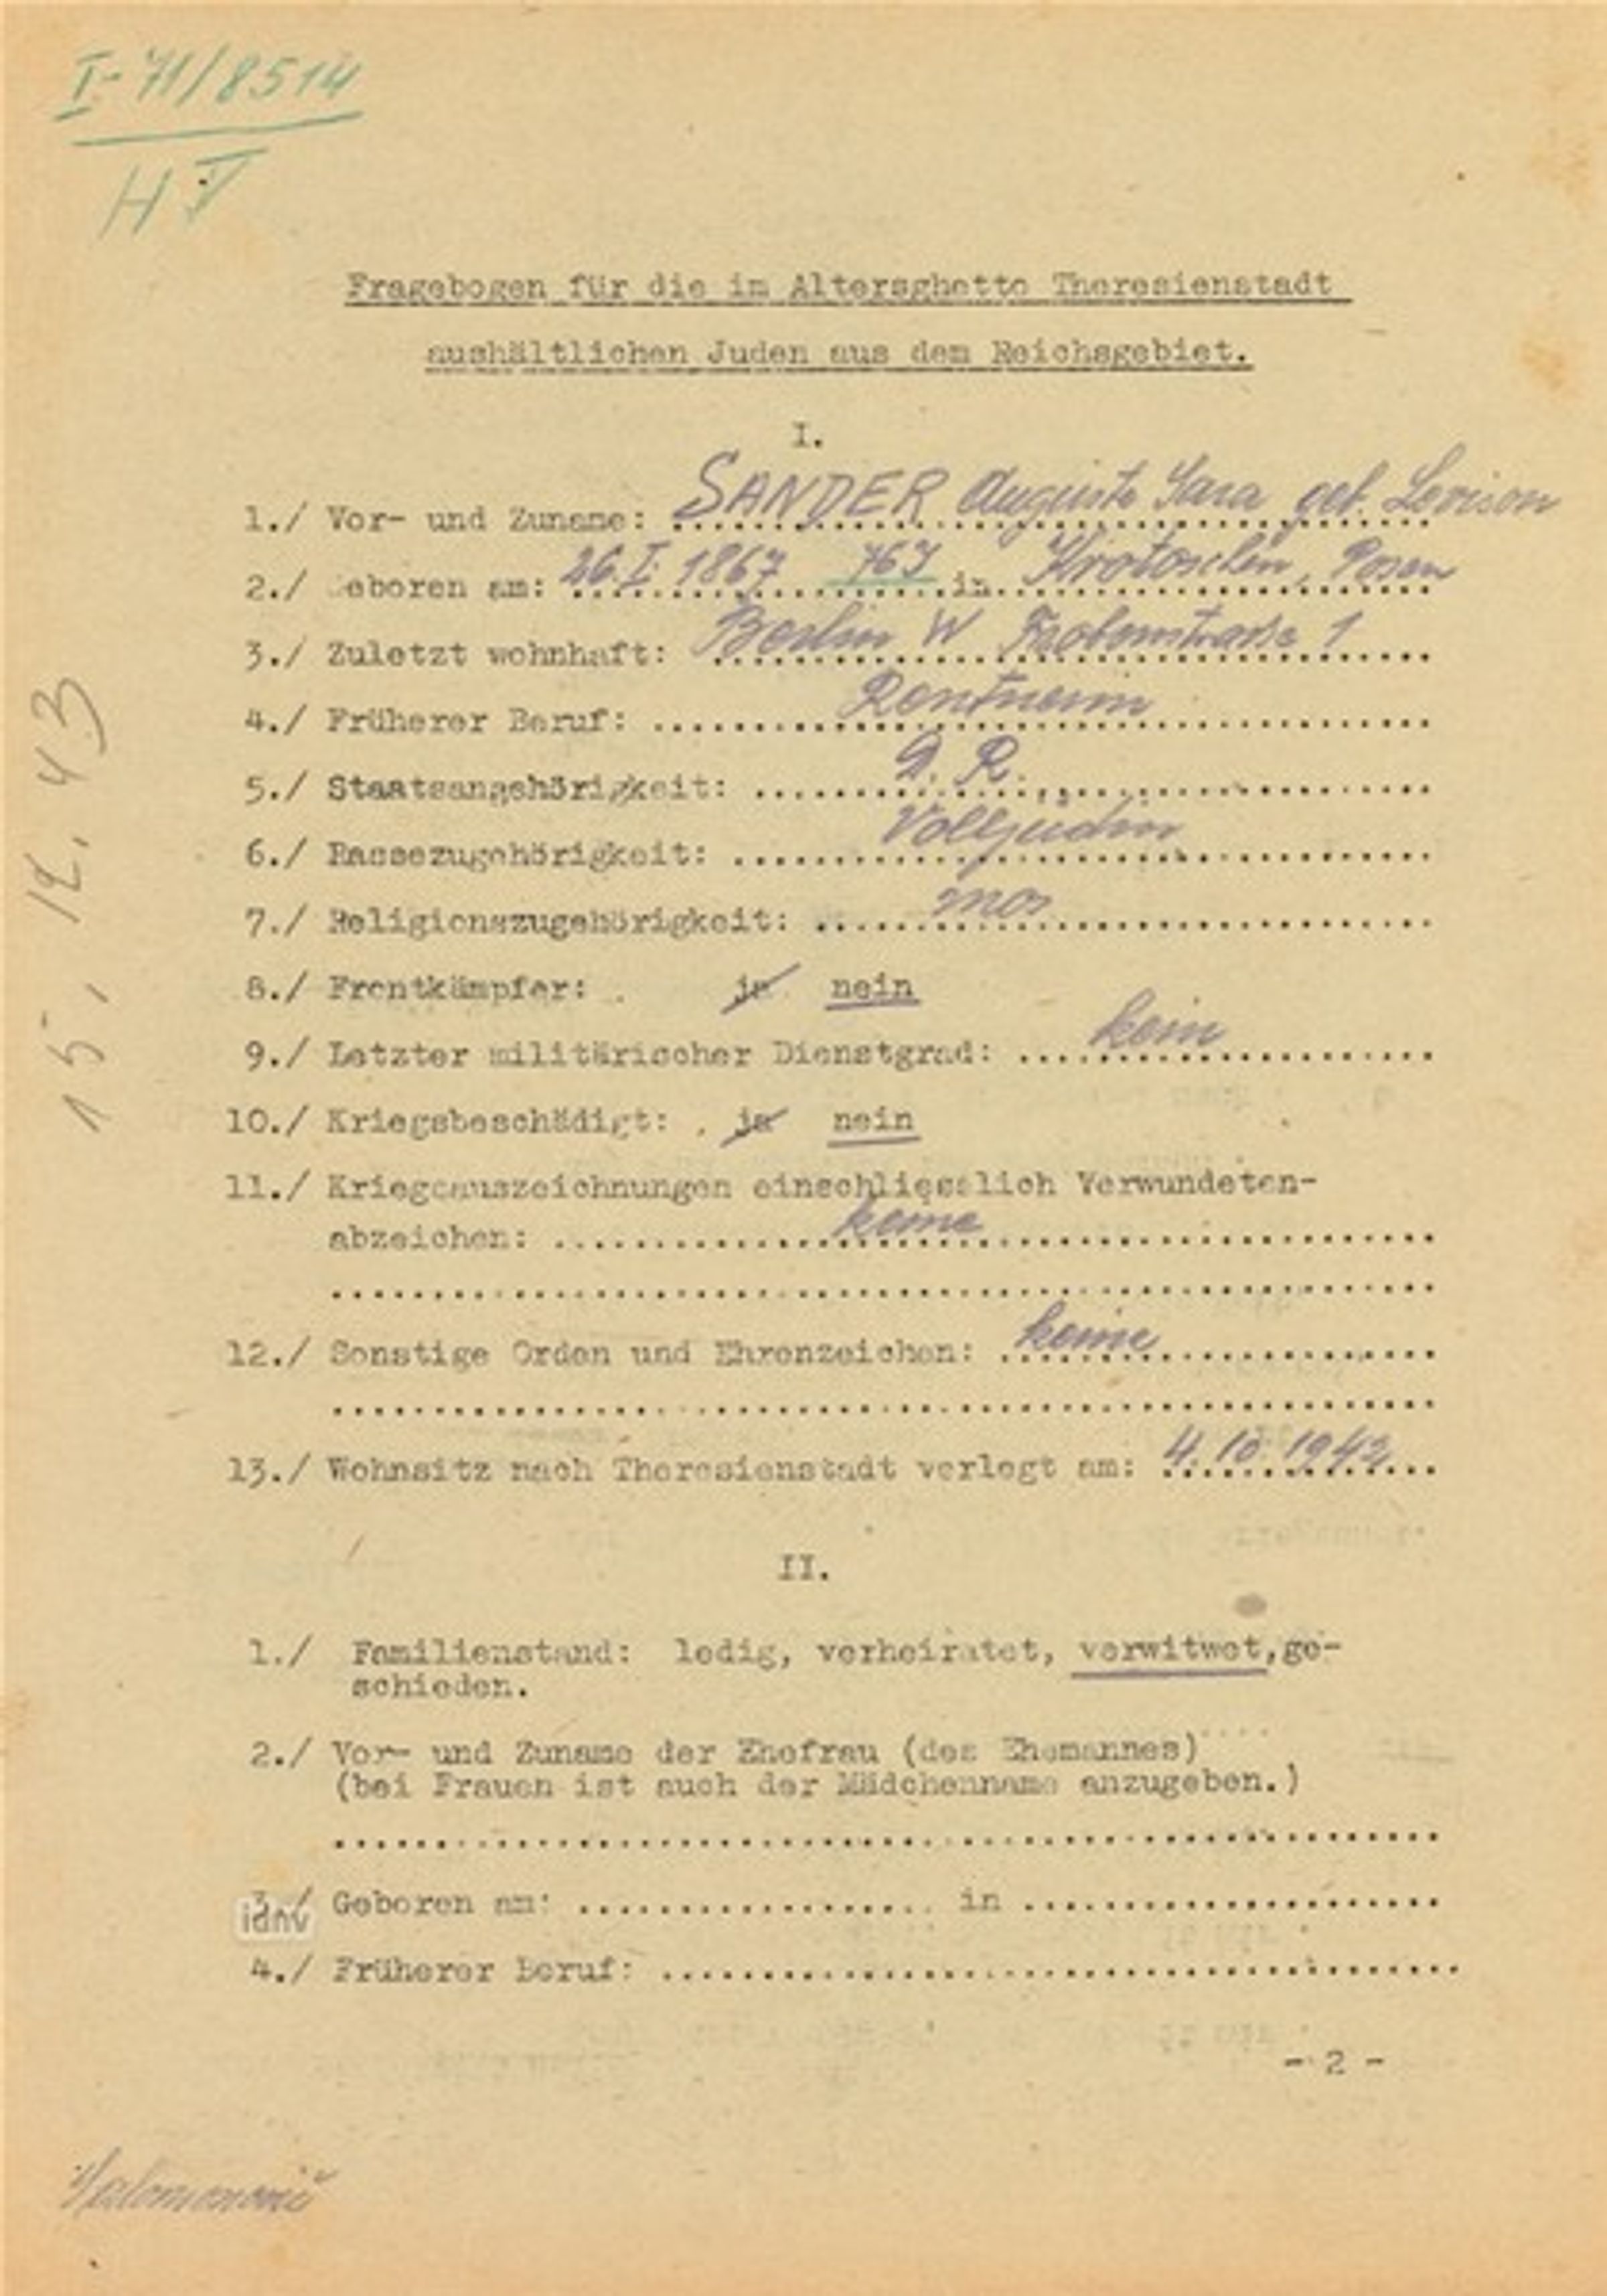 I-71/8514
H V
Fragebogen für die im Altersghetto Theresienstadt
aushältlichen Juden aus dem Reichsgebiet.
I.
1./ Vor- und Zuname: SANDER Auguste Sara geb. Levison
2./ Geboren am: 26. I. 1867 767 in Krotoschin, Posen
3./ Zuletzt wohnhaft: Berlin W Frobenstraße 1
4./ Früherer Beruf: Rentnerin
5./ Staatsangehörigkeit: D. R.
6./ Rassezugehörigkeit: Volljüdin
7./ Religionszugehörigkeit: mos
8./ Frontkämpfer: ja nein
9./ Letzter militärischer Dienstgrad: kein
10./ Kriegsbeschädigt: ja nein
11./ Kriegsauszeichnungen einschliesslich Verwundeten-
abzeichen: keine
12./ Sonstige Orden und Ehrenzeichen: keine
13./ Wohnsitz nach Theresienstadt verlegt am: 4. 10. 1942
II.
1./ Familienstand: ledig, verheiratet, verwitwet, ge-
schieden.
2./ Vor- und Zuname der Ehefrau (des Ehemannes)
(bei Frauen ist auch der Mädchenname anzugeben.)
3./ Geboren am: in
4./ Früherer Beruf:
- 2 -
15. 12. 43
idnv